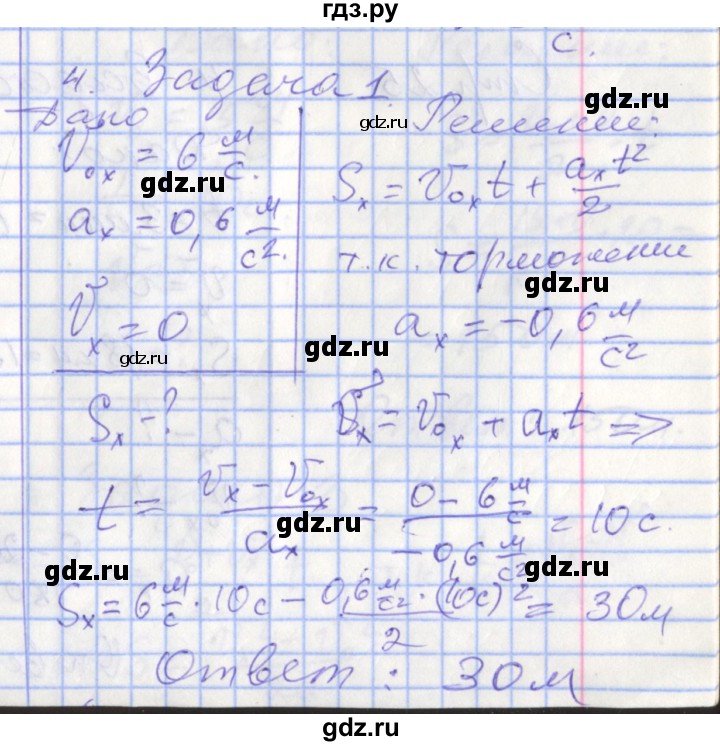 гдз.ру
с.
4. Задача 1.
Дано
Решение:
V₀ₓ = 6 м/с.
aₓ = 0,6 м/с².
Vₓ = 0
Sₓ - ?
Sₓ = V₀ₓt + aₓt²/2
т.к. торможение
aₓ = -0,6 м/с²
Vₓ = V₀ₓ + aₓt =>
t = (Vₓ - V₀ₓ)/aₓ = (0 - 6 м/с)/(-0,6 м/с²) = 10 с.
Sₓ = 6 м/с · 10 с - (0,6 м/с² · (10с)²)/2 = 30 м
Ответ: 30 м
gdz.ru
gdz.ru
gdz.ru
gdz.ru
gdz.ru
gdz.ru
gdz.ru
gdz.ru
gdz.ru
gdz.ru
gdz.ru
gdz.ru